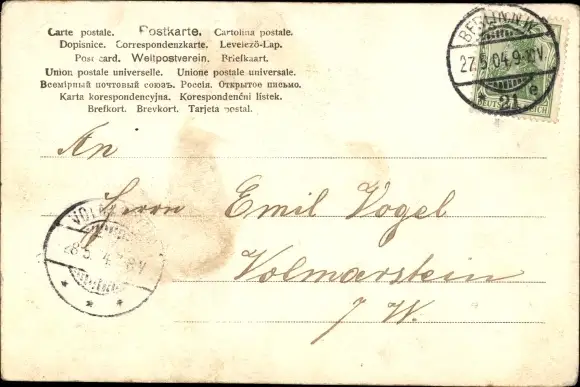 Carte postale. Postkarte. Cartolina postale.
Dopisnice. Correspondenzkarte. Levelező-Lap.
Post card. Weltpostverein. Briefkaart.
Union postale universelle. Unione postale universale.
Всемірный почтовый союзъ. Россія. Открытое письмо.
Karta korespondencyjna. Korespondenční lístek.
Brefkort. Brevkort. Tarjeta postal.
BERLIN N.W.
27.5.04.9-10V.
21 e
An
Herrn Emil Vogel
Volmarstein
i/W.